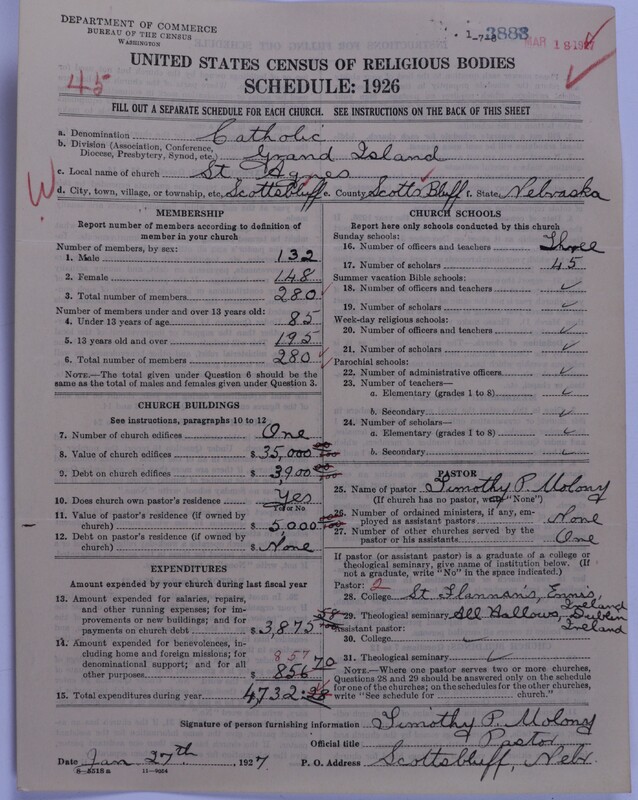 DEPARTMENT OF COMMERCE
BUREAU OF THE CENSUS
WASHINGTON
3883
MAR 18 1927
45
UNITED STATES CENSUS OF RELIGIOUS BODIES
SCHEDULE: 1926
FILL OUT A SEPARATE SCHEDULE FOR EACH CHURCH. SEE INSTRUCTIONS ON THE BACK OF THIS SHEET
a. Denomination Catholic
b. Division (Association, Conference, Diocese, Presbytery, Synod, etc.) Grand Island
c. Local name of church St. Agnes
d. City, town, village, or township, etc. Scottsbluff e. County Scotts Bluff f. State, Nebraska
MEMBERSHIP
Report number of members according to definition of
member in your church
Number of members, by sex:
1. Male 132
2. Female 148
3. Total number of members 280
Number of members under and over 13 years old:
4. Under 13 years of age 85
5. 13 years old and over 195
6. Total number of members 280
NOTE.—The total given under Question 6 should be
same as the total of males and females given under Question 3.
CHURCH BUILDINGS
See instructions, paragraphs 10 to 12
7. Number of church edifices One
8. Value of church edifices $ 35,000
9. Debt on church edifices $ 3,900
10. Does church own pastor's residence Yes
Yes or No
11. Value of pastor's residence (if owned by
church) $ 5,000
12. Debt on pastor's residence (if owned by
church) $ None
EXPENDITURES
Amount expended by your church during last fiscal year
13. Amount expended for salaries, repairs,
and other running expenses; for im-
provements or new buildings; and for
payments on church debt $ 3,875 58
14. Amount expended for benevolences, in-
cluding home and foreign missions; for
denominational support; and for all
857
other purposes $ 856 70
15. Total expenditures during year 4732.28
CHURCH SCHOOLS
Report here only schools conducted by this church
Sunday schools:
16. Number of officers and teachers Three
17. Number of scholars 45
Summer vacation Bible schools:
18. Number of officers and teachers
19. Number of scholars
Week-day religious schools:
20. Number of officers and teachers
21. Number of scholars
Parochial schools:
22. Number of administrative officers
23. Number of teachers—
a. Elementary (grades 1 to 8)
b. Secondary
24. Number of scholars—
a. Elementary (grades 1 to 8)
b. Secondary
PASTOR
25. Name of pastor Timothy P. Molony
(If church has no pastor, write "None")
26. Number of ordained ministers, if any, em-
ployed as assistant pastors None
27. Number of other churches served by the
pastor or his assistants One
If pastor (or assistant pastor) is a graduate of a college or
theological seminary, give name of institution below. (If
not a graduate, write "No" in the space indicated.)
Pastor: 2
28. College St Flannan's, Ennis, Ireland
29. Theological seminary All Hallows, Dublin Ireland
Assistant pastor:
30. College
31. Theological seminary
NOTE.—Where one pastor serves two or more churches,
Questions 28 and 29 should be answered only on the schedule
for one of the churches; on the schedules for the other churches,
write "See schedule for church."
Signature of person furnishing information Timothy P. Molony
Official title Pastor
Date Jan 27th, 1927 P. O. Address Scottsbluff, Nebr.
8-5518a 11-9064